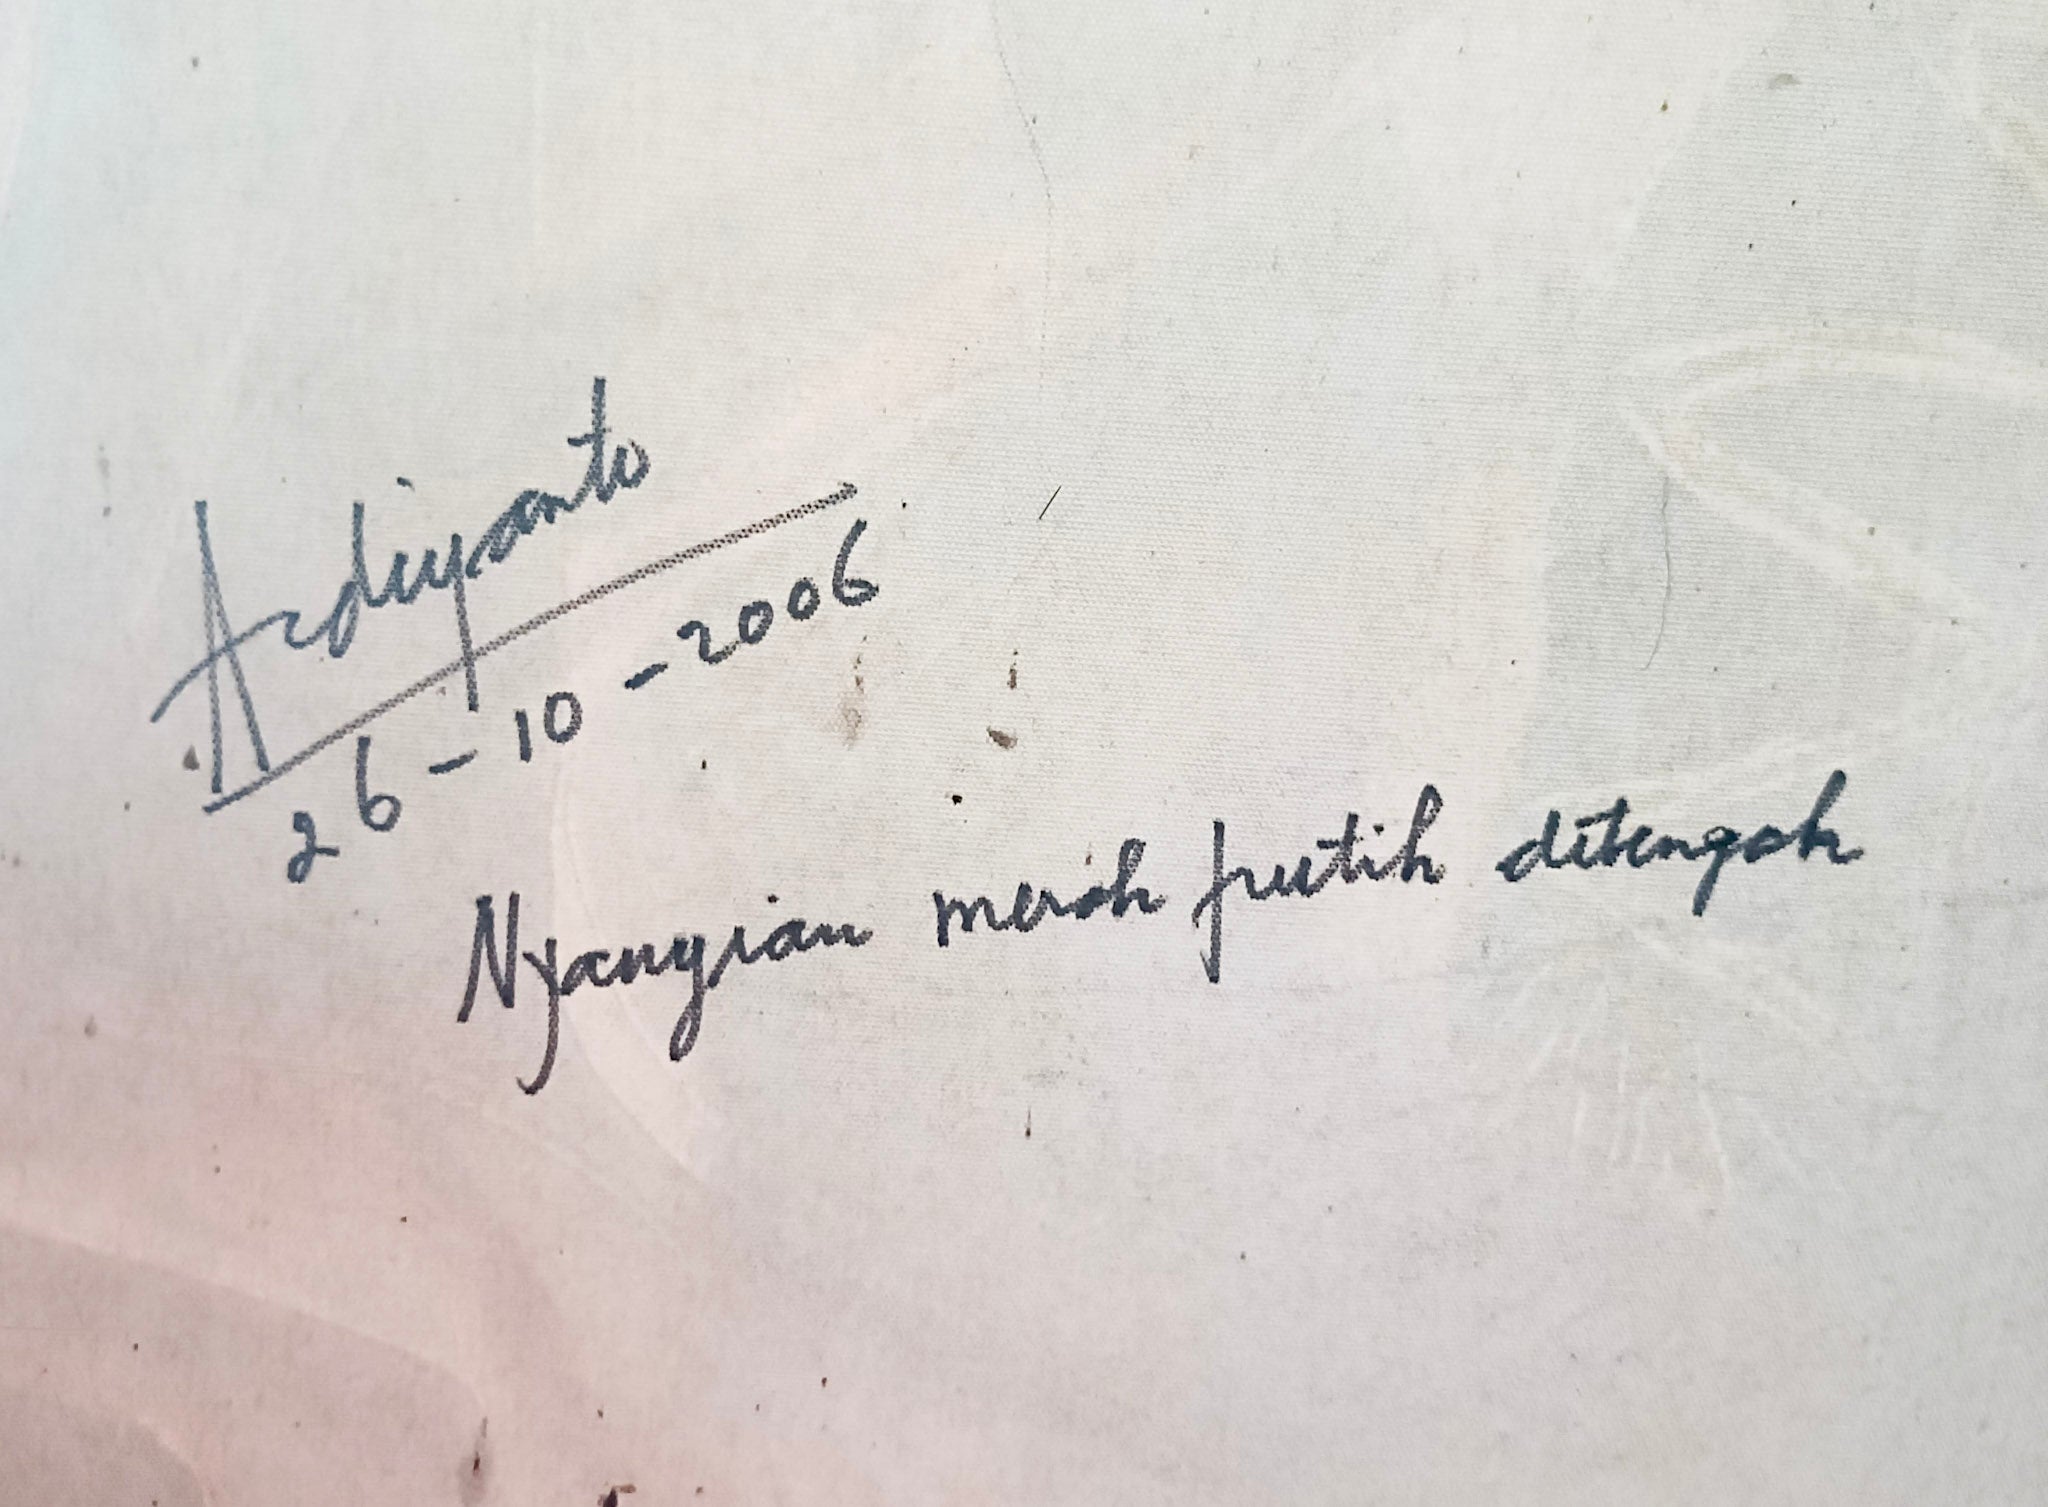 Ardiyanto
26-10-2006
Nyanyian merah putih ditengah